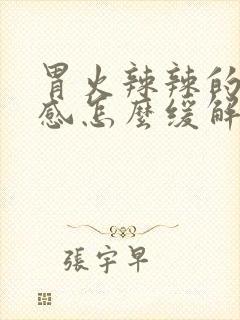 胃火辣辣的
感怎麼緩解
張宇早